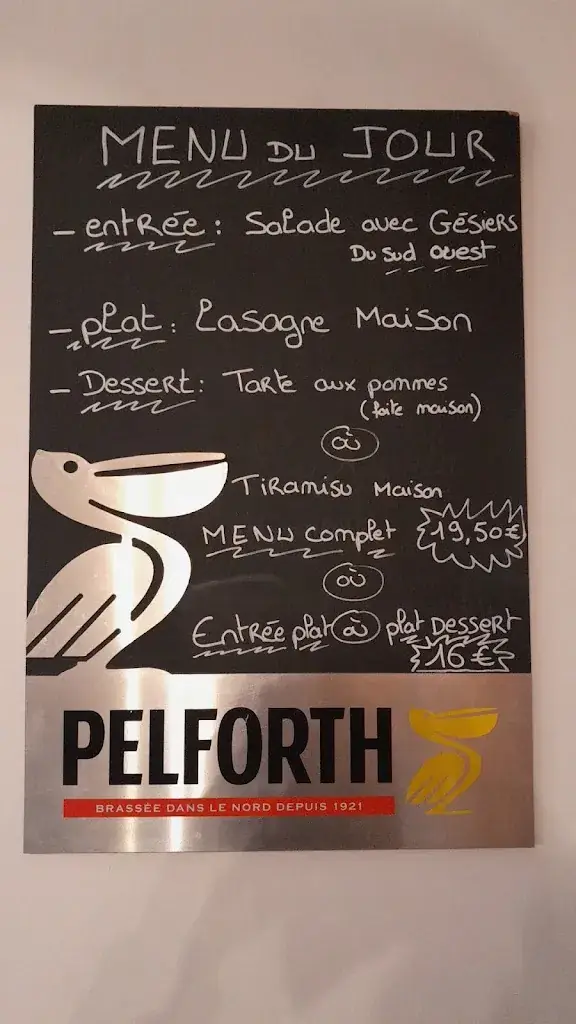 MENU DU JOUR
- entrée : Salade avec Gésiers
Du Sud Ouest
- plat : Lasagne Maison
- Dessert : Tarte aux pommes
(faite maison)
où
Tiramisu Maison
MENU complet 19,50€
où
Entrée plat où plat Dessert
16€
PELFORTH
BRASSÉE DANS LE NORD DEPUIS 1921